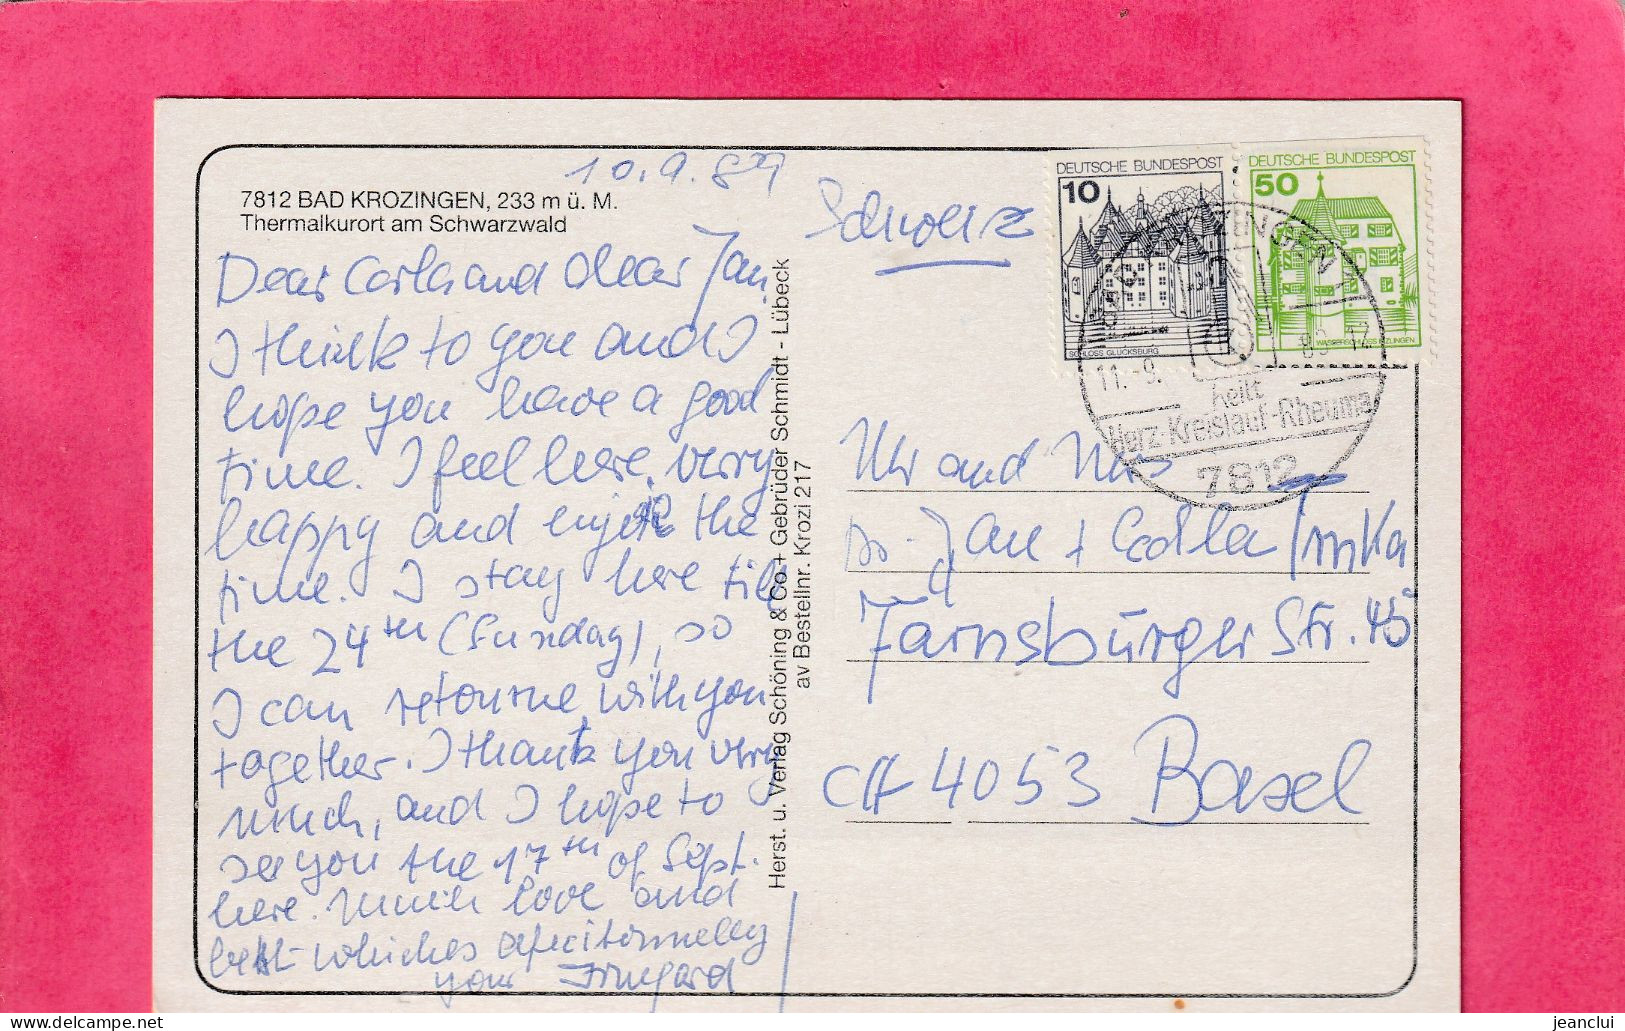 10.9.89
7812 BAD KROZINGEN, 233 m ü. M.
Thermalkurort am Schwarzwald
Dear Carla and dear Jan,
I think to you and I
hope you have a good
time. I feel here very
happy and enjoie the
time. I stay here till
the 24th (Sunday), so
I can retourne with you
together. I thank you very
much, and I hope to
see you the 17th of Sept.
here. Much love and
best whiches
your Irmgard
Herst. u. Verlag Schöning & Co + Gebrüder Schmidt - Lübeck
av Bestellnr. Krozi 217
Schweiz
DEUTSCHE BUNDESPOST
10
SCHLOSS GLÜCKSBURG
DEUTSCHE BUNDESPOST
50
WASSERSCHLOSS INZLINGEN
BAD KROZINGEN
11.-9. 89-12
heilt
Herz-Kreislauf-Rheuma
7812
Mr and Mrs
Jan + Carla
Farnsburger Str. 45
CH 4053 Basel
jeanclui
delcampe.net